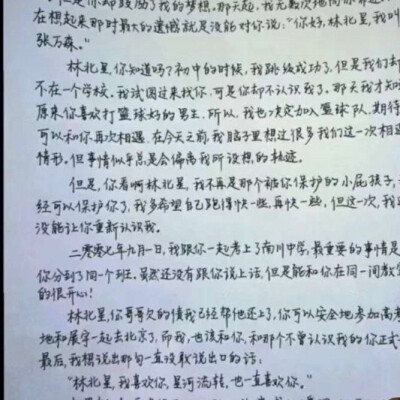 但是你却鼓励了我的梦想。那天起，我无数次
在想起来那时最大的遗憾就是没能对你说:"你好,林北星,我叫
张万森。"
林北星,你知道吗?初中的时候,我跳级成功了,但是我们却
不在一个学校。我试图过来找你,可是你却不认识我了。那天我才知
原来你喜欢打篮球好的男生.所以,我也决定加入篮球队,期待
可以和你再次相遇.在今天之前,我脑子里想过很多我们这一次相遇
情形。但事情似乎总是会偏离我所设想的轨迹。
但是,你看啊林北星,我不再是那个被你保护的小屁孩子,
经可以保护你了,我多希望自己跑得快一些,再快一些,但这一次,我还
没能让你重新认识我。
二零零七年九月一日,我跟你一起考上了南川中学,最重要的事情是
你分到了同一个班。虽然还没有跟你说上话,但是能和你在同一间教室
的很开心!
林北星,你哥哥欠的债我已经帮他还上了,你可以安全地参加高考
地和展宇一起去北京了,而我,也该和你,和那个不曾认识我的你正式
最后,我想说出那句一直没敢说出口的话:
"林北星,我喜欢你,星河流转,也一直喜欢你。"